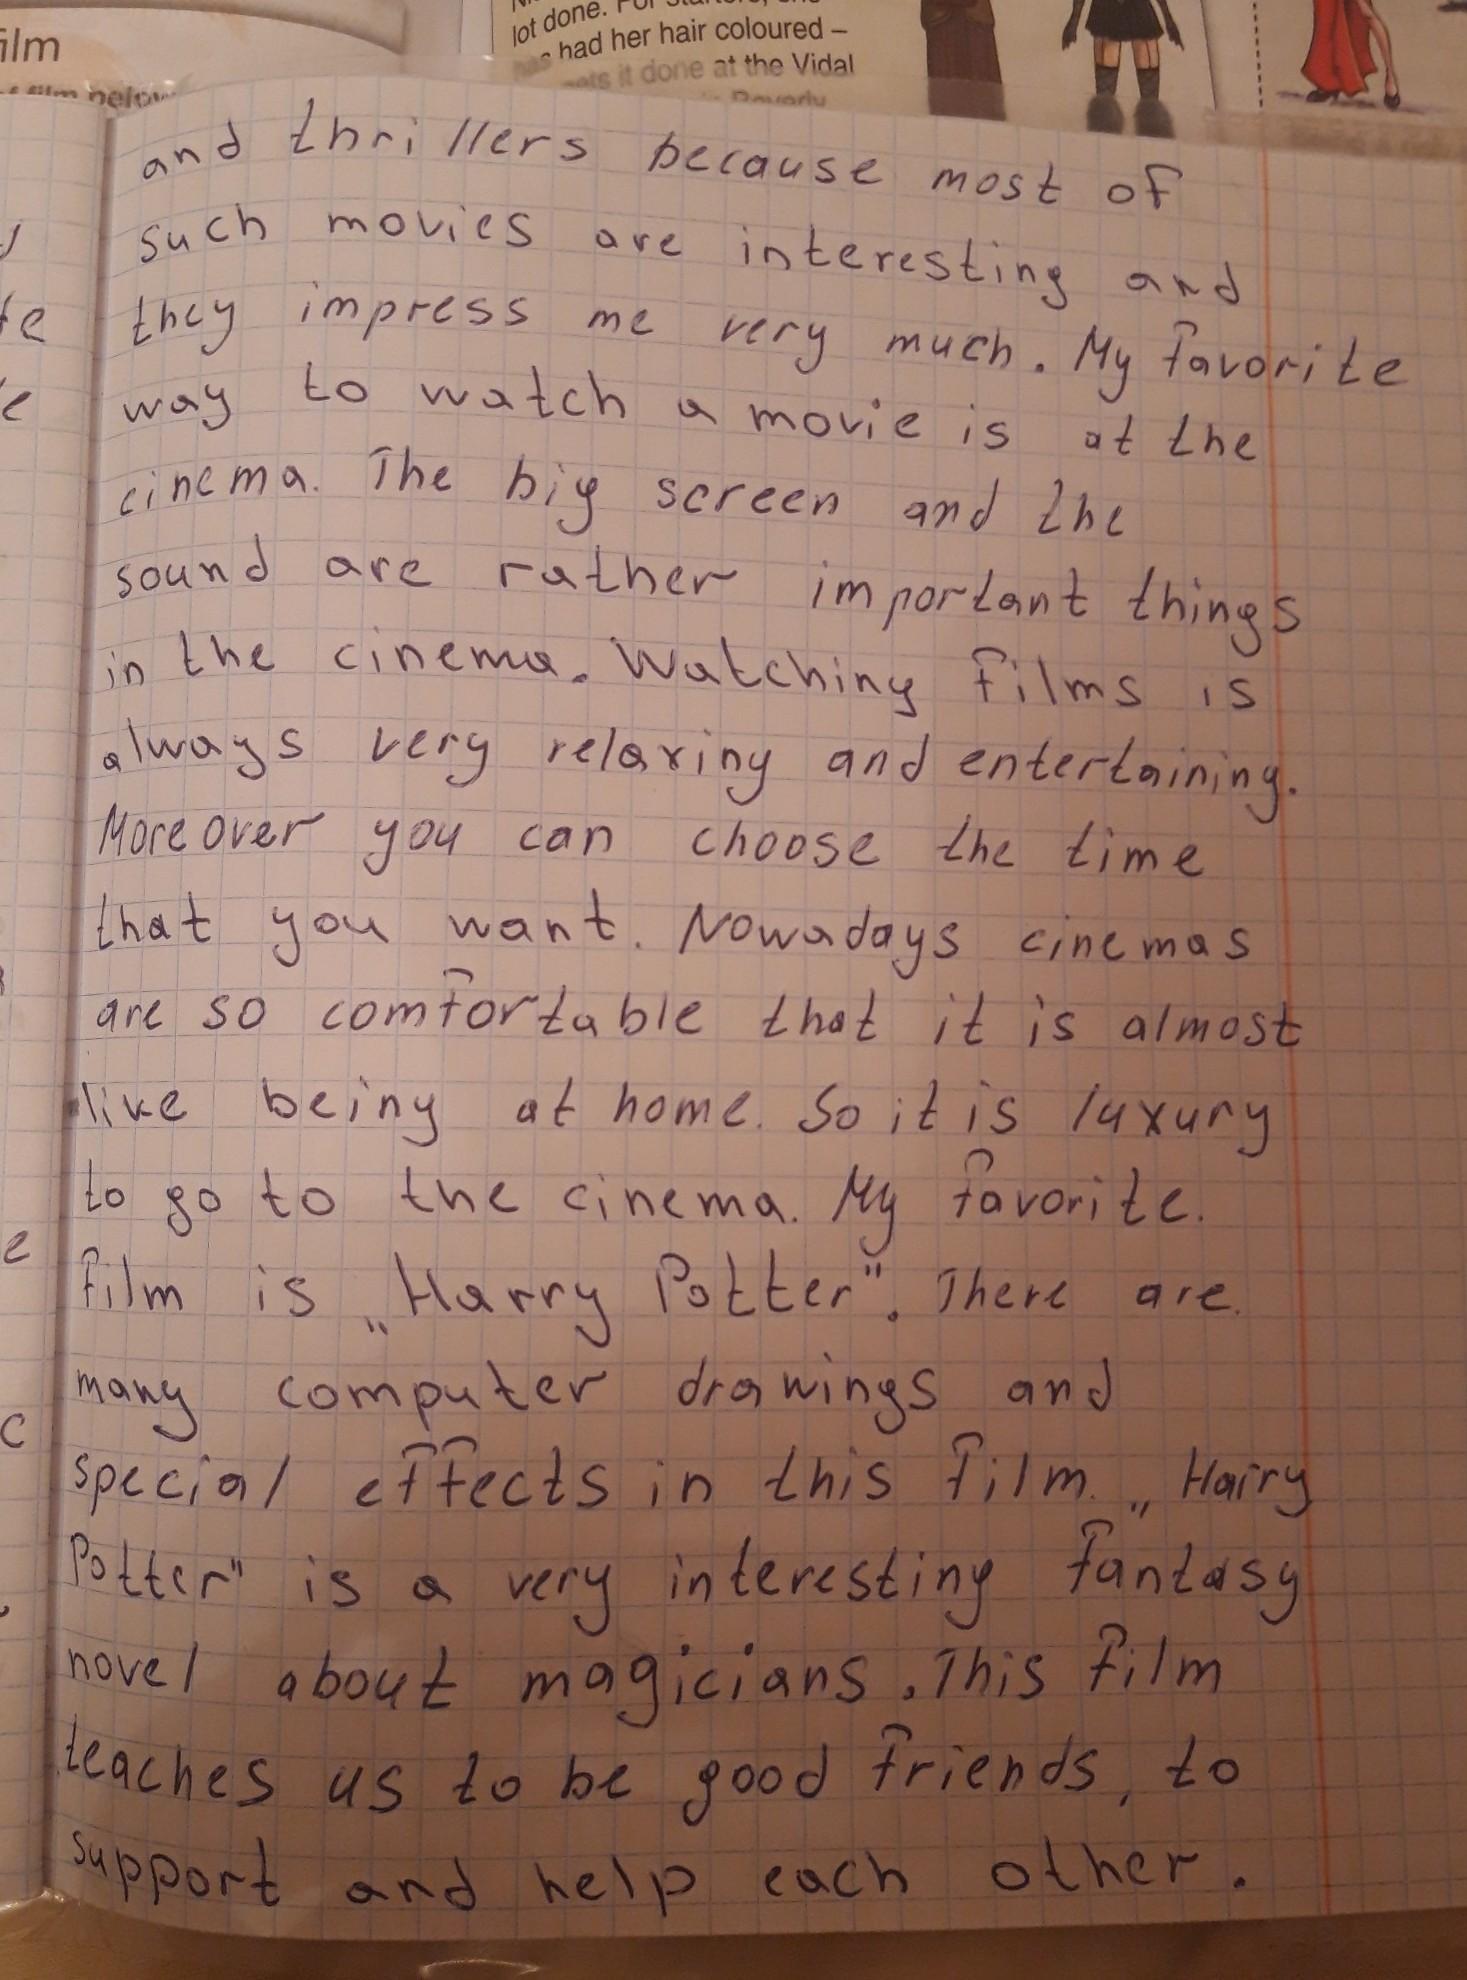 film
film below
lot done. For
had her hair coloured –
gets it done at the Vidal
and thrillers because most of
such movies are interesting and
they impress me very much. My favorite
way to watch a movie is at the
cinema. The big screen and the
sound are rather important things
in the cinema. Watching films is
always very relaxing and entertaining.
Moreover you can choose the time
that you want. Nowadays cinemas
are so comfortable that it is almost
like being at home. So it is luxury
to go to the cinema. My favorite.
film is „Harry Potter". There are.
many computer drawings and
special effects in this film. „Harry
Potter" is a very interesting fantasy
novel about magicians. This film
teaches us to be good friends, to
support and help each other.